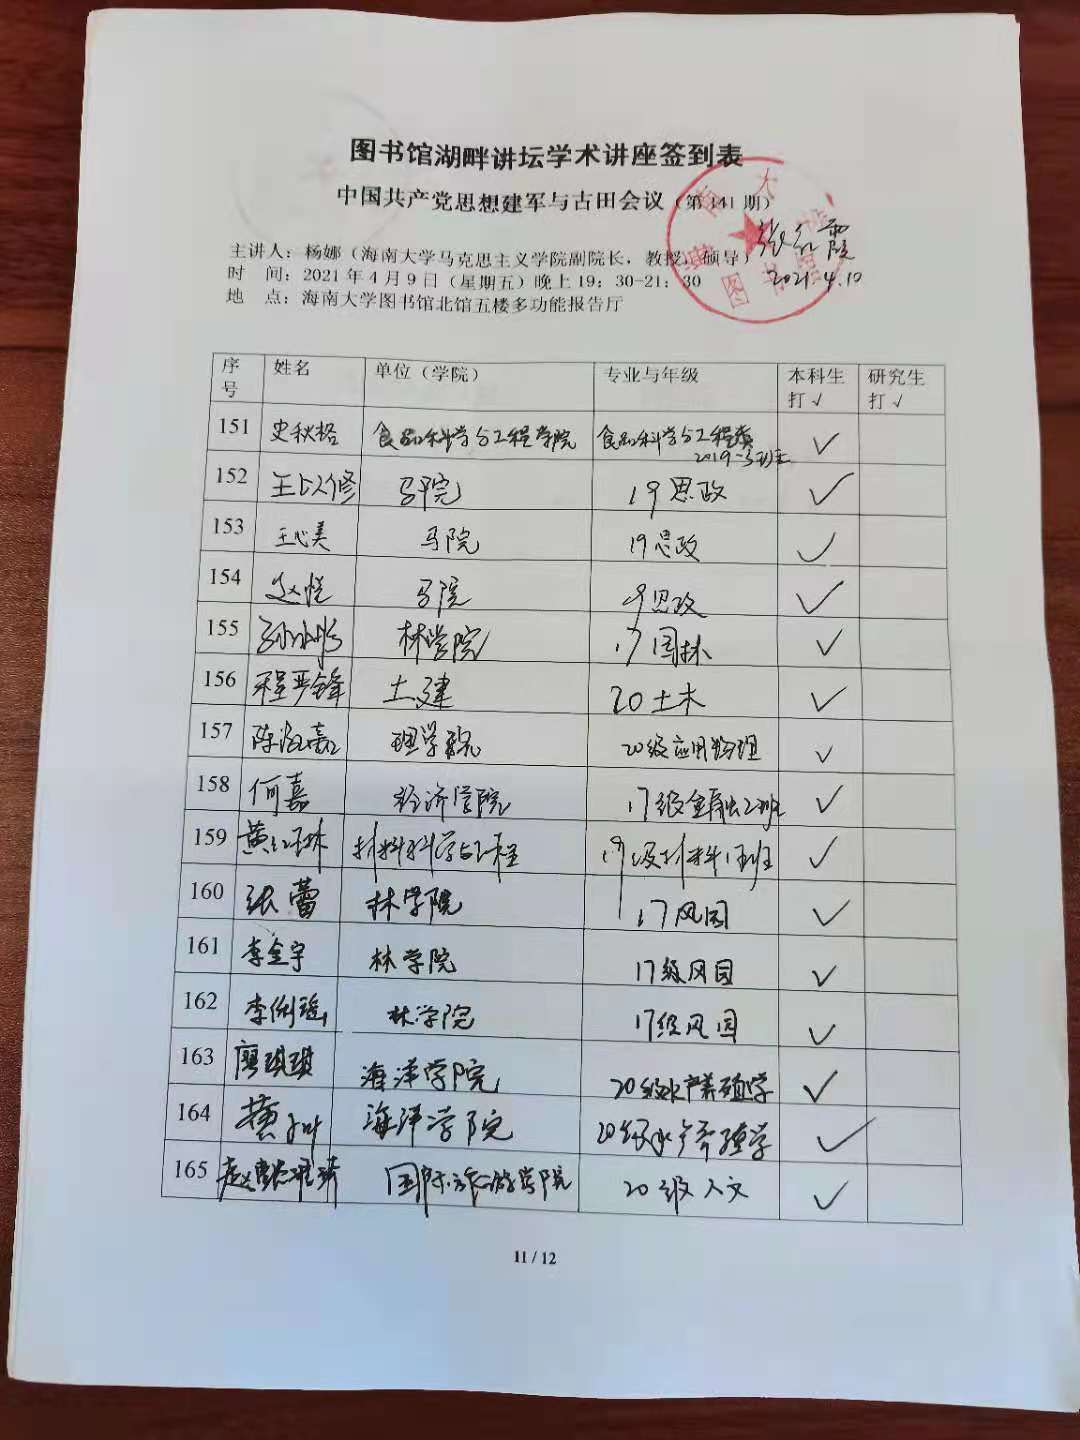 图书馆湖畔讲坛学术讲座签到表
中国共产党思想建军与古田会议（第141期）
主讲人：杨娜（海南大学马克思主义学院副院长，教授，硕导）
时 间：2021年4月9日（星期五）晚上19：30-21：30
地 点：海南大学图书馆北馆五楼多功能报告厅
2021.4.10
序号 姓名 单位（学院） 专业与年级 本科生打√ 研究生打√
151 史秋格 食品科学与工程学院 食品科学与工程类 2019-3班 √
152 马院 19思政 √
153 王心美 马院 19思政 √
154 赵恺 马院 19思政 √
155 林学院 17园林 √
156 程严锋 土建 20土木 √
157 理学院 20级应用物理 √
158 何嘉 经济学院 17级金融2班 √
159 材料科学与工程 19级材料1班 √
160 张蕾 林学院 17风园 √
161 李金宇 林学院 17级风园 √
162 李俐瑶 林学院 17级风园 √
163 廖琪琪 海洋学院 20级水产养殖学 √
164 海洋学院 20级水产养殖学 √
165 国际旅游学院 20级人文 √
11 / 12